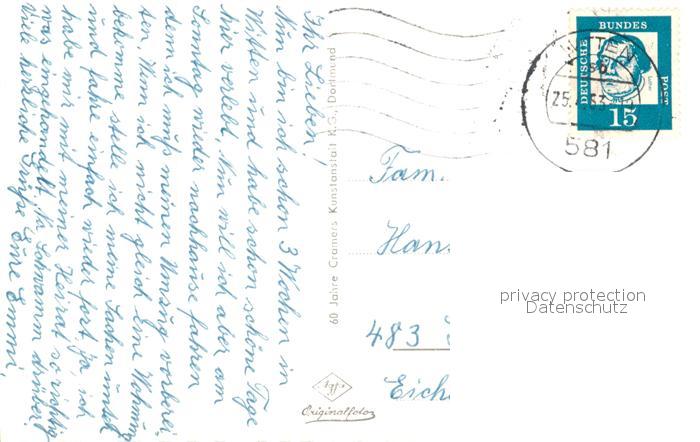 Ihr Lieben!
Nun bin ich schon 3 Wochen in
Witten und habe schon schöne Tage
hier verlebt. Nun will ich aber am
Sonntag wieder nachhause fahren
denn ich muß meinen Umzug vorberei-
ten. Wenn ich nicht gleich eine Wohnung
bekomme stelle ich meine Sachen unter
und fahre einfach wieder fort. Ja, ich
habe mir mit meiner Heirat so richtig
was eingehandelt. Na Schwamm drüber!
Viele herzliche Grüße Eure Emmi.
60 Jahre Cramers Kunstanstalt K.G., Dortmund
DEUTSCHE
BUNDES
POST
15
WITTEN
581
Fam.
Han
483
Eich
Originalfoto
privacy protection
Datenschutz